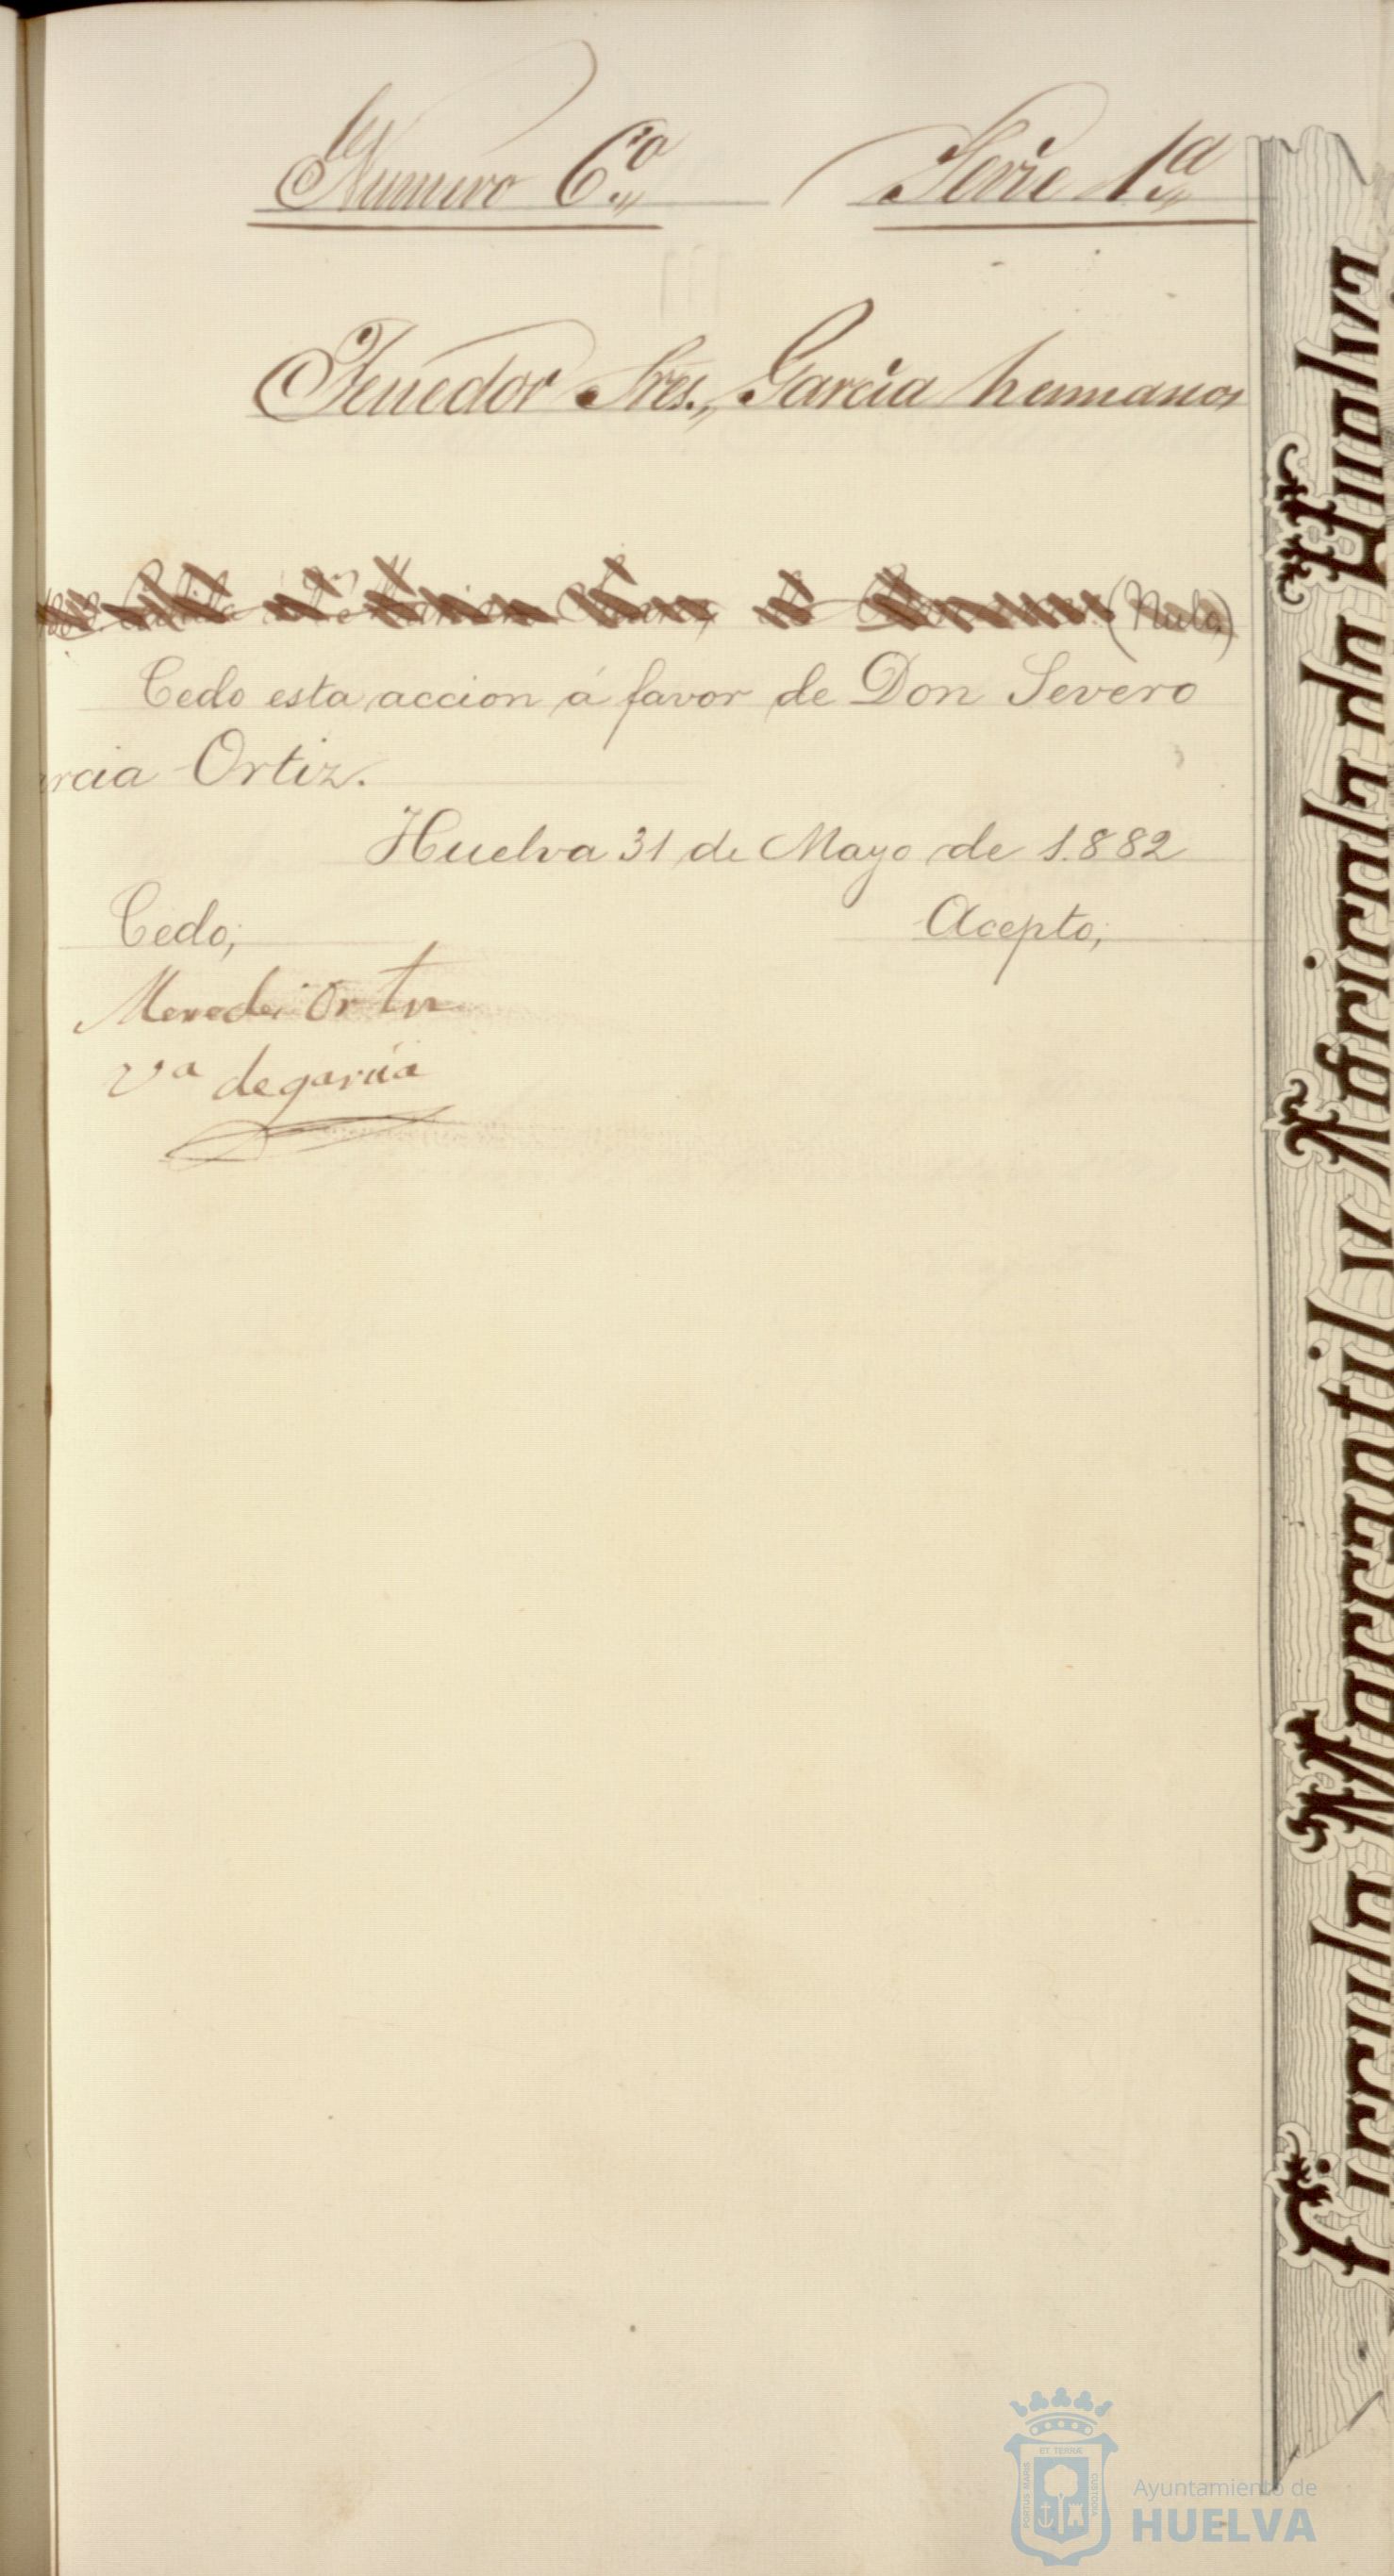 Numero 6.º Serie 1.ª
Tenedor Sres., Garcia hermanos
(Nula)
Cedo esta accion á favor de Don Severo
rcia Ortiz.
Huelva 31 de Mayo de 1.882
Cedo; Acepto;
Mercedes Ortiz
Vª de garcia
Circulo Mercantil y Agricola de Huelva
ET TERRÆ
PORTUS MARIS
CUSTODIA
Ayuntamiento de
HUELVA